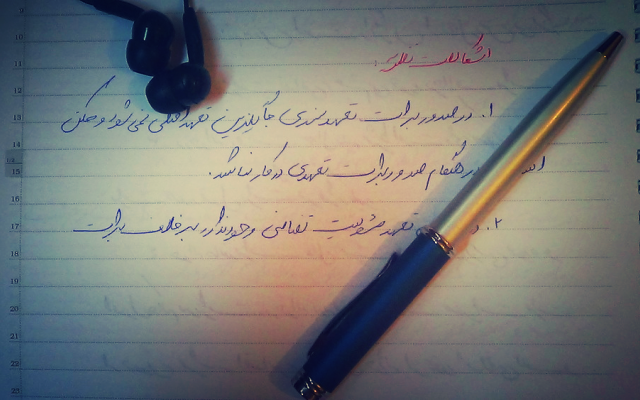 اشکالات نظریه:
۱. در صدور برات تعهد سندی جایگزین تعهد اصلی نمی شود و ممکن
در هنگام صدور برات تعهدی در کار نباشد.
۲. تعهد مسئولیت تضامنی وجود ندارد بر خلاف برات